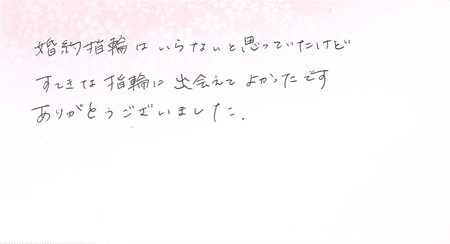 婚約指輪はいらないと思っていたけど
すてきな指輪に出会えてよかったです
ありがとうございました.